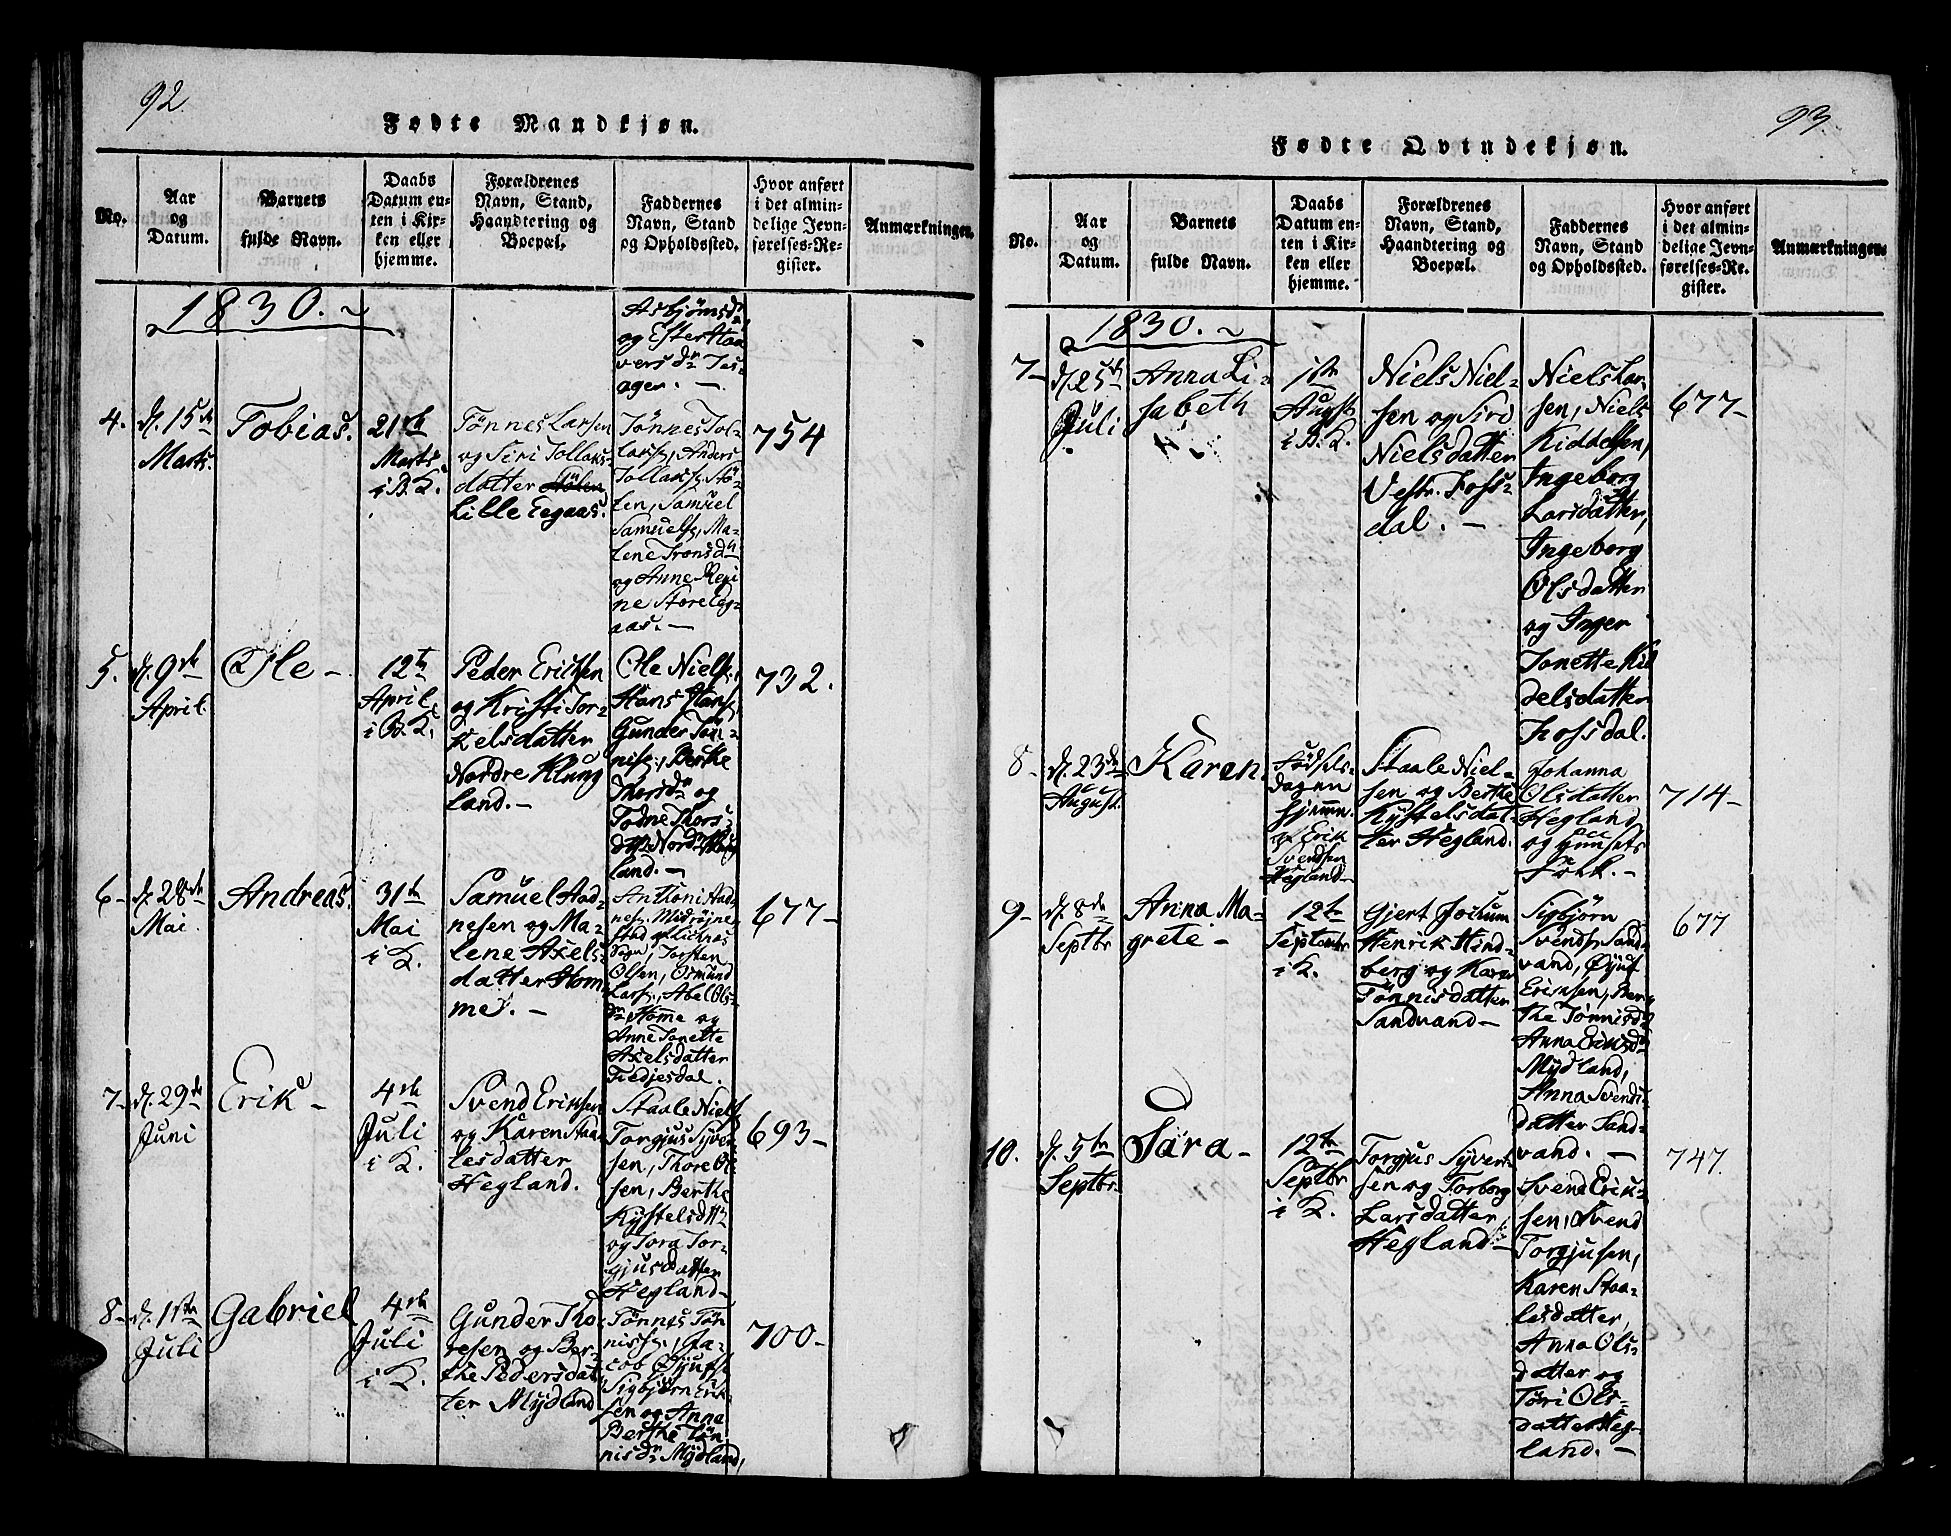 92
Fødte Mandkjøn.
No.
Aar
og
Datum.
Barnets
fulde Navn.
Daabs
Datum en-
ten i Kir-
ken eller
hjemme.
Forældrenes
Navn, Stand,
Haandtering og
Boepæl.
Faddernes
Navn, Stand
og Opholdssted.
Hvor anført
i det almin-
delige Jevn-
førelses-Re-
gister.
Anmærkninger.
1830.
Asbjörnsdr
og Ester Haa
versdr Jes-
ager. –
4.
d. 15de
Marts.
Tobias.
21th
Marts
i B.K.
Tönnes Larsen
og Siri Tollaks-
datter Stölen
Lille Eegaas.
Tönnes Tol-
laks., Anders
Tollaks. Stö-
len, Samuel
Samuels., Ma-
lene Tronsdr
og Anne Regi
ne Store Eeg-
aas. –
754
5.
d. 9de
April.
Ole –
12te
April
i B.K.
Peder Ericksen
og Kristi Tor-
kelsdatter
Nordre Klung
land. –
Ole Niels.,
Hans Hans.,
Gunder Tön-
nis., Berthe
Thorsdr og
Todne Thors
dtr Nordr Klung
land. –
732.
6 –
d. 28de
Mai.
Andreas.
31te
Mai
i K.
Samuel Aad-
nesen og Ma-
lene Axels-
datter Hom-
me. –
Anthoni Aad-
nes. Midröjne
stad
Sogn, Torsten
Olsen, Osmund
Lars., Abel Ols-
dr Homme og
Anne Tonette
Axelsdatter
Fiedjesdal.
677 –
7 –
d. 29de
Juni
Erik –
4de
Juli
i K.
Svend Eriksen
og Karen Staa-
lesdatter
Hegland.
Staale Niels.
Torgjus Syver
sen, Thore Ol
sen, Berthe
Kystelsdttr
og Tora Tor-
gjusdatter
Hegland –
693 –
8 –
d. 1ste
Juli
Gabriel
4de
Juli
i K.
Gunder Tho-
resen og Ber-
the Pedersdat
ter Mydland
Tönnes Tön
niss., Ja-
cob Øjufs.
Sigbjörn Erik
sen og Anna
Berthe Tön
nisdr Mydland,
700 –
93.
Fødte Qvindekjøn.
No.
Aar
og
Datum.
Barnets
fulde Navn.
Daabs
Datum en-
ten i Kir-
ken eller
hjemme.
Forældrenes
Navn, Stand,
Haandtering og
Boepæl.
Faddernes
Navn, Stand
og Opholdssted.
Hvor anført
i det almin-
delige Jevn-
førelses-Re-
gister.
Anmærkninger.
1830.
7 –
d. 25de
Juli
Anna Li-
sabeth
1ste
August
i B.K.
Niels Niel-
sen og Siri
Nielsdatter
Vestr. Foss-
dal. –
Niels Lar-
sen, Niels
Kiddelsen,
Ingeborg
Larsdatter,
Ingeborg
Olsdatter
og Inger
Tonette Kid
delsdatter
Fossdal.
677 –
8 –
d. 23de
August.
Karen.
Födsels-
dagen
hjemme.
af Erik
Svendsen
Hegland –
Staale Niel-
sen og Berthe
Kystelsdat-
ter Hegland.
Johanna
Olsdatter
Hegland
og Huusets
Folk. –
714 –
9 –
d. 8de
Septbr
Anna Ma-
grete –
12te
Septembr
i K.
Gjert Jockum
Henrik Hind-
berg og Karen
Tönnisdatter
Sandvand –
Sigbjörn
Svends. Sand-
vand, Øjuf
Ericksen, Ber-
the Tönnisdr
Anna Eriksdr
Mydland,
Anna Svends-
datter Sand-
vand. –
677
10.
d. 5te
Septbr.
Sara –
12te
Septbr
i K.
Torgius Syvert
sen og Torborg
Larsdatter
Hegland –
Svend Erik-
sen, Svend
Torgjusen,
Karen Staa-
lesdatter,
Anna Ols-
datter og
Töri Ols-
datter Heg-
land. –
747.